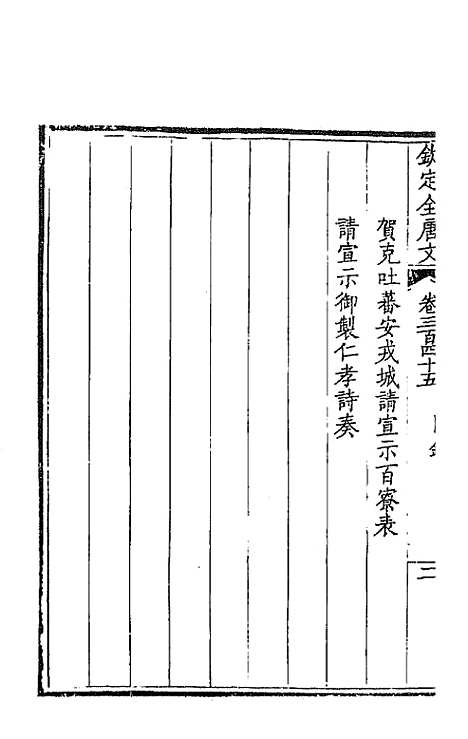 欽定全唐文 卷三百四十五 目錄 二
賀克吐蕃安戎城請宣示百寮表
請宣示御製仁孝詩奏